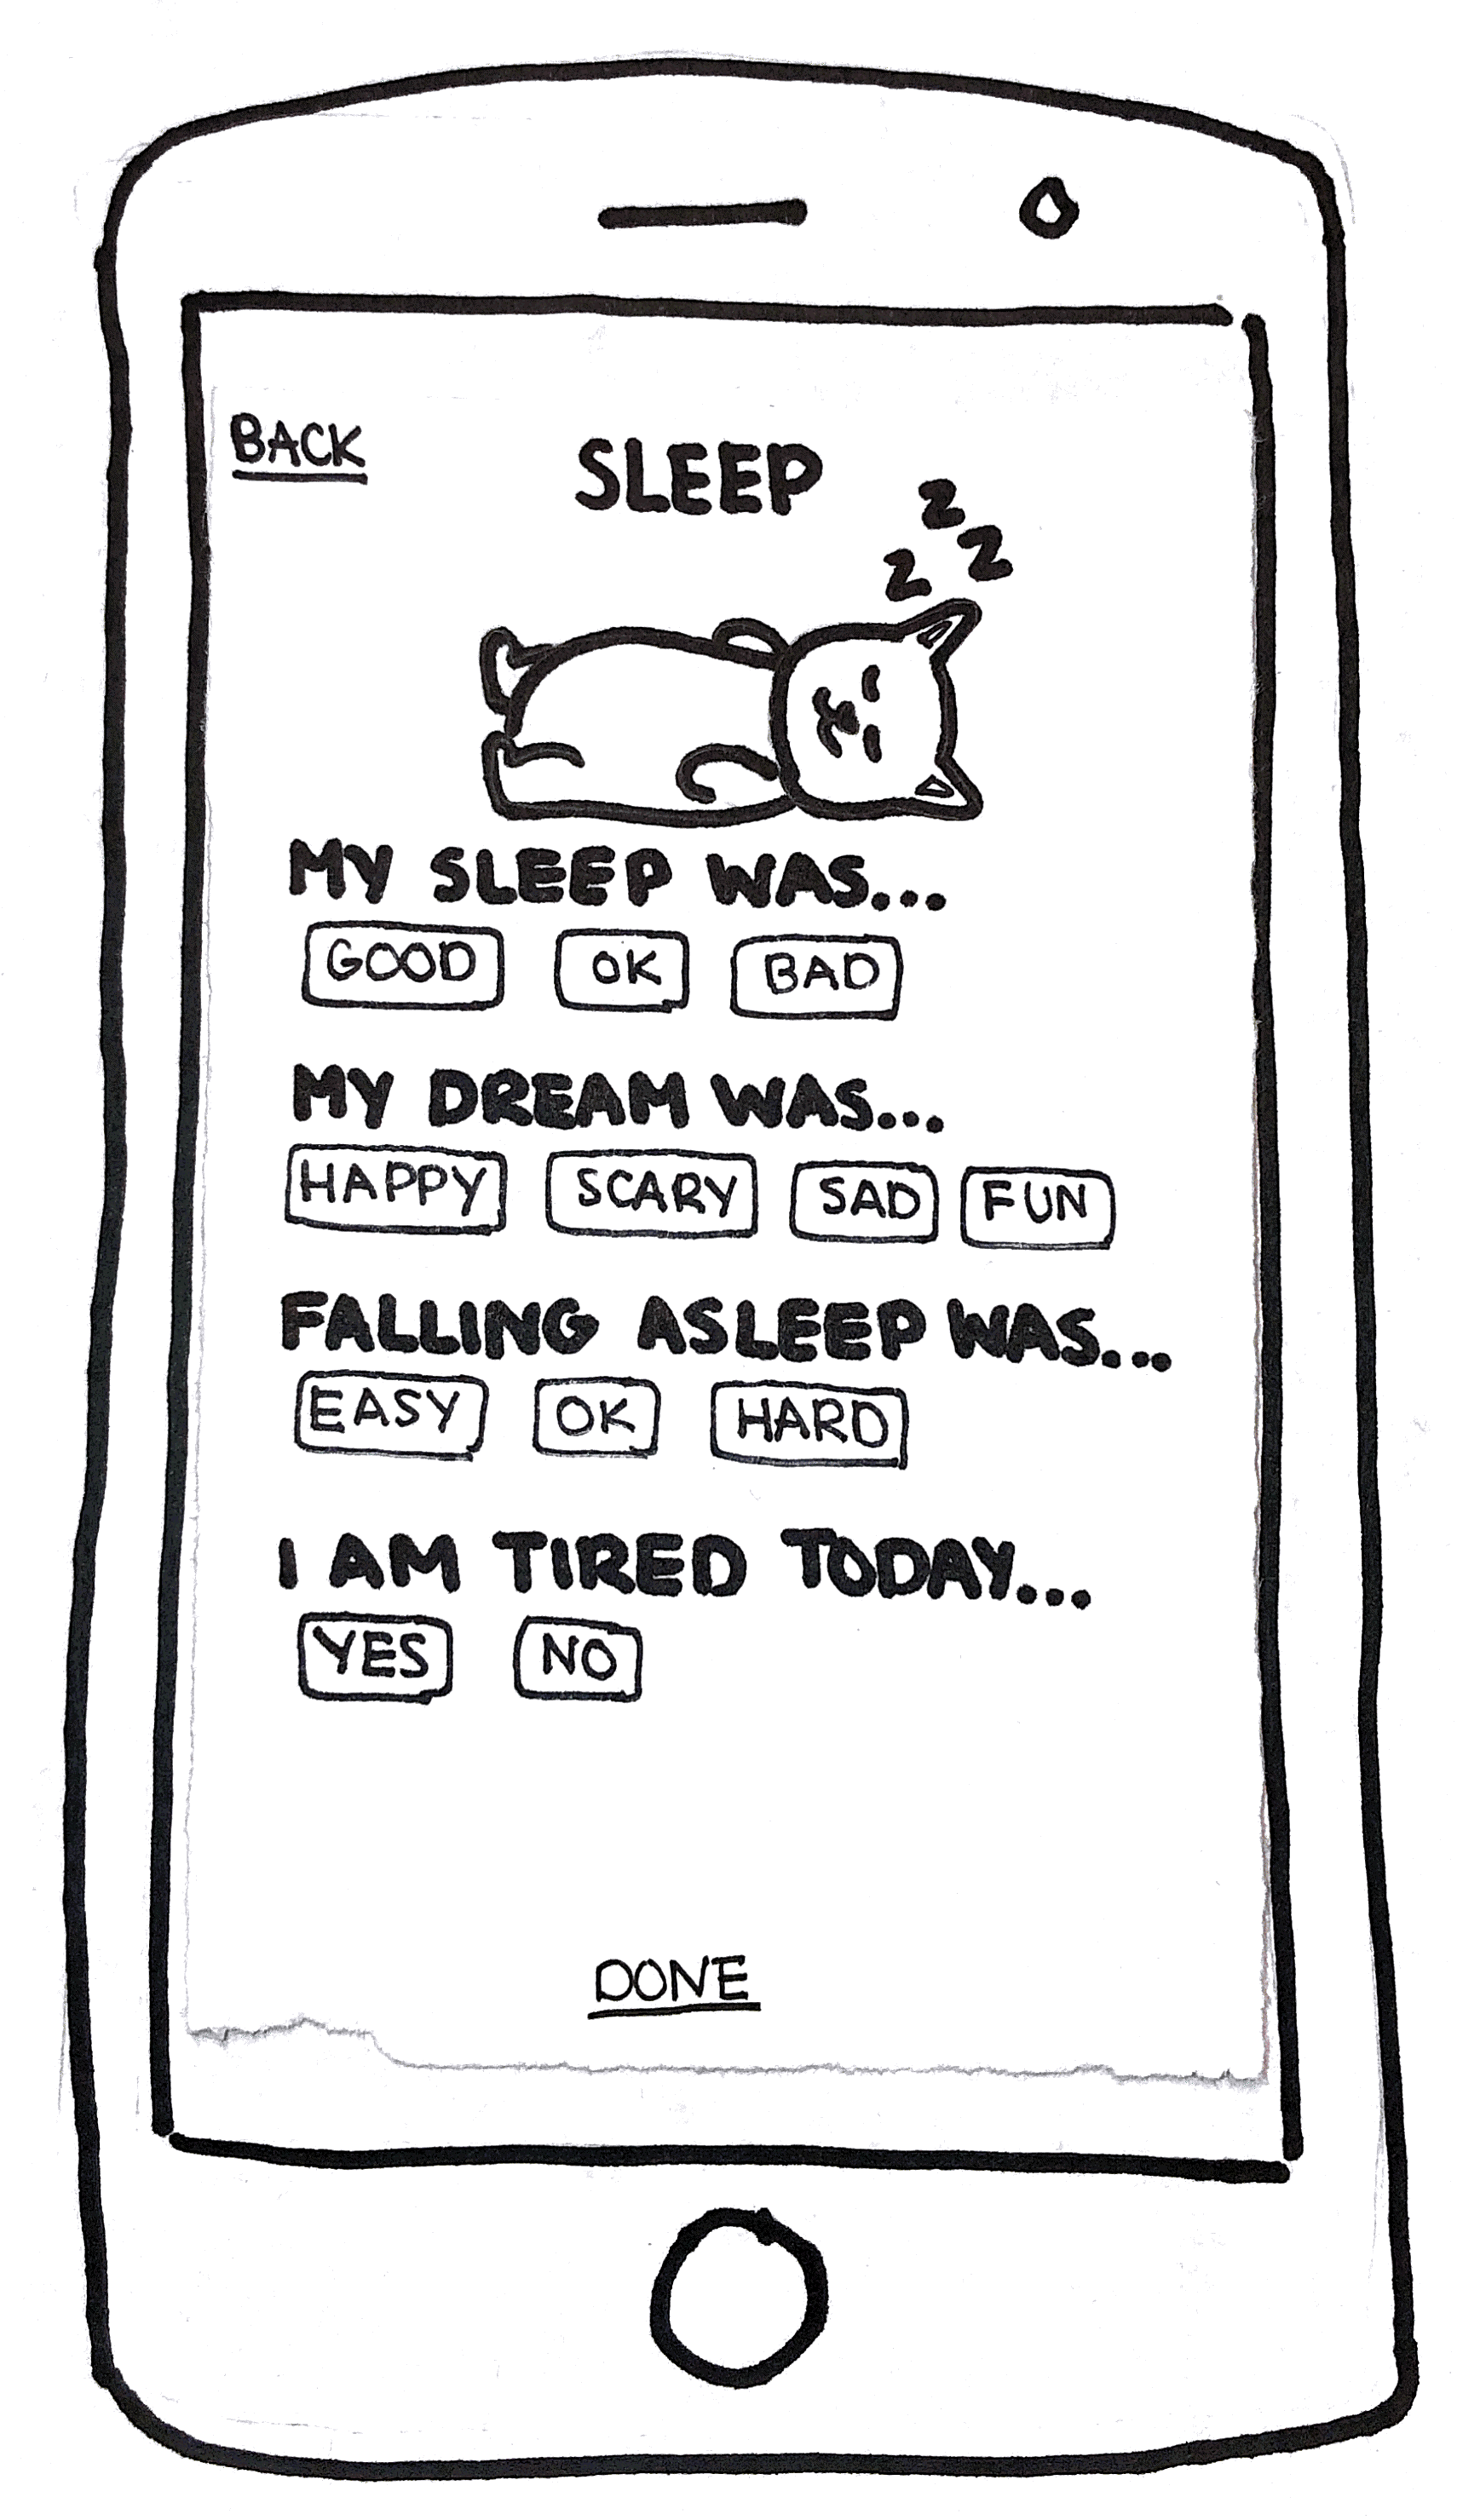 BACK
SLEEP
z
z
z
MY SLEEP WAS...
GOOD OK BAD
MY DREAM WAS...
HAPPY SCARY SAD FUN
FALLING ASLEEP WAS...
EASY OK HARD
I AM TIRED TODAY...
YES NO
DONE